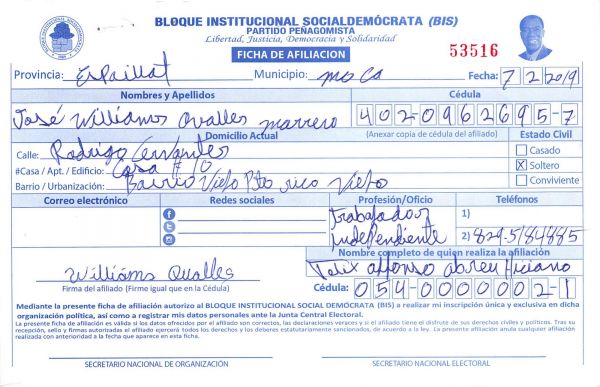 BLOQUE INSTITUCIONAL SOCIALDEMÓCRATA (BIS)
PARTIDO PEÑAGOMISTA
Libertad, Justicia, Democracia y Solidaridad
FICHA DE AFILIACION
53516
Provincia: Espaillat Municipio: moca Fecha: 7 2 2019
Nombres y Apellidos Cédula
José Williáms Ovalles marrero 402-0962695-7
Domicilio Actual (Anexar copia de cédula del afiliado) Estado Civil
Calle: Rodrigo Cervantes Casado
#Casa / Apt. / Edificio: Casa # 10 X Soltero
Barrio / Urbanización: Barrio Viejo Pto rico Viejo Conviviente
Correo electrónico Redes sociales Profesión/Oficio Teléfonos
trabajador 1)
independiente 2) 829-5184885
Nombre completo de quien realiza la afiliación
Williáms Ovalles Felix Alfonso Abreu
Firma del afiliado (Firme igual que en la Cédula) Cédula: 054-0000002-1
Mediante la presente ficha de afiliación autorizo al BLOQUE INSTITUCIONAL SOCIAL DEMÓCRATA (BIS) a realizar mi inscripción única y exclusiva en dicha
organización política, así como a registrar mis datos personales ante la Junta Central Electoral.
La presente ficha de afiliación es válida si los datos ofrecidos por el afiliado son correctos, las declaraciones veraces y si el afiliado tiene el disfrute de sus derechos civiles y políticos. Tras su
recepción, sello y firmas autorizadas el afiliado ejercerá todos los derechos y los deberes estatutariamente sancionados, de acuerdo a la ley. La presente afiliación anula cualquier afiliación
realizada con anterioridad a la fecha que aparece en esta ficha.
SECRETARIO NACIONAL DE ORGANIZACIÓN SECRETARIO NACIONAL ELECTORAL